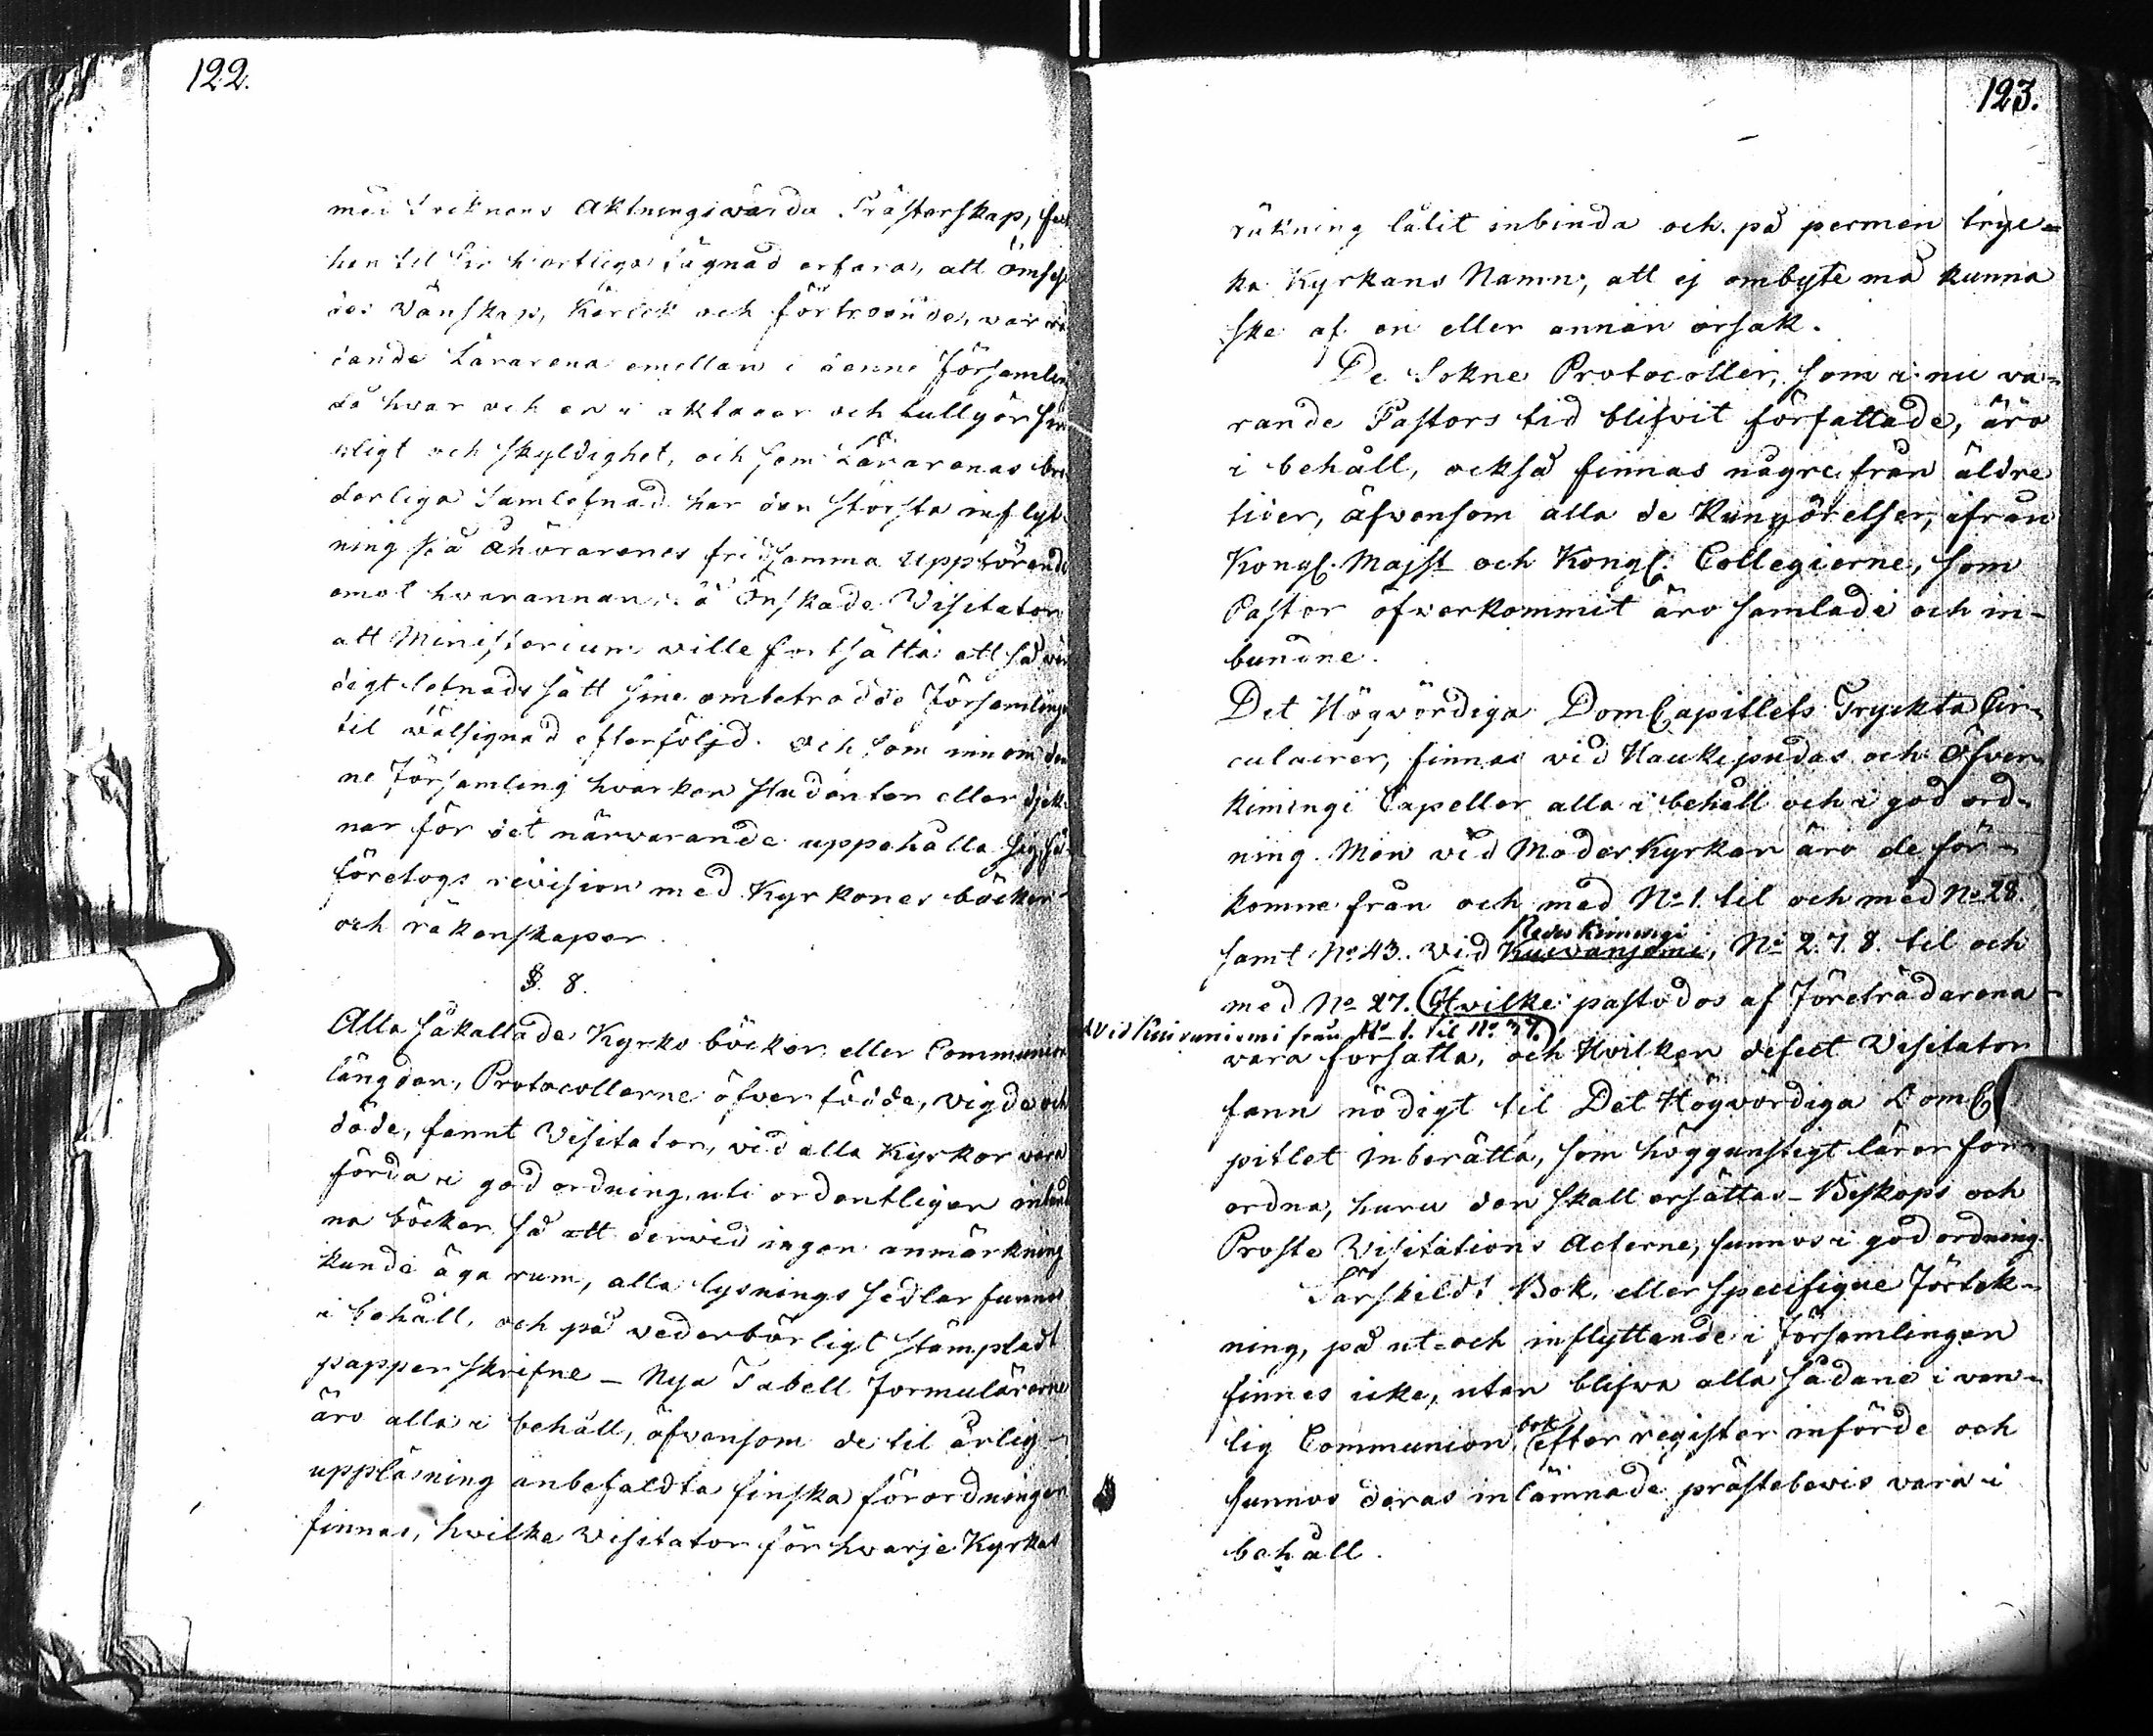 122.
med Soknens Aktningsvärda Prästerskap, fick
han til sin hiertliga fägnad erfara, att ömsesi
des Vänskap, Kärlek och förtroende, war rå
dande Lärarena emellan i denne Församling
då hvar och en i akttager och fullgör sin
pligt och skyldighet, och som Lärarenas brö
derliga Samlefnad har den största inflyt
ning på åhörarenes fridsamma Uppförande
emot hvarannan, så Önskade Visitator
att Ministerium ville fortsätta ett så vär
digt lefnads sätt sine ombetrodde Församlingar
til wälsignad efterföljd. Och som innom den
ne Församling hvarken Studenter eller djek-
nar för det närwarande uppehålla sig, så
företogs revision med Kyrkones böcker
och räkenskaper.
§. 8.
Alla såkallade Kyrko böcker eller Communion
längder, Protocollerne öfver födde, vigde och
döde, fannt Visitator, vid alla Kyrkor vara
förda i god ordning uti ordentligen inbund
na böcker så att dervid ingen anmärkning
kunde äga rum, alla lysnings sedlar funnos
i behåll, och på vederbörligt stämpladt
papper skrifne – Nya Tabell Formulärerne
äro alla i behåll, äfvensom de til årlig
uppläsning anbefaldta finska förordningar
finnas, hvilke Visitator för hvarje Kyrkas
123.
räkning låtit inbinda och på permen tryc-
ka Kyrkans Namn, att ej ombyte må kunna
ske af en eller annan orsak.
De Sokne Protocoller, som i nu va-
rande Pastors tid blifvit författade, äro
i behåll, också finnas någre från äldre
tider, äfvensom alla de Kungörelser, ifrån
Kongl. Majst och Kongl. Collegierne, som
Pastor öfverkommit äro samlade och in-
bundne.
Det Högvördiga DomCapitlets Tryckta Cir-
culairer, finnas vid Haukipudas och Öfver
kimingi Capeller alla i behåll och i god ord-
ning. Men vid Moderkyrkan äro de för-
komne från och med No 1. til och med No 28.
samt No 43. vid Kuivaniemi, Nederkimingi No 2. 7. 8. til och
med No 27. Hvilke påstodos af Företrädarena
vid Kuivaniemi från No 1. til No 37.
vara forsatta, och Hvilken defect Visitator
fann nödigt til Det Högvördiga DomCa
pitlet inberätta, som höggunstigt lärer for-
ordna, huru den skall ersättas – Biskops och
Proste Visitations Acterne, funnos i god ordning.
Särskild Bok, eller specifique Förtek-
ning, på ut- och inflyttande i Församlingen
finnes icke, utan blifva alla sådane i van-
lig Communion bok efter register införde och
funnos deras inlämnade prästebevis vara i
behåll.